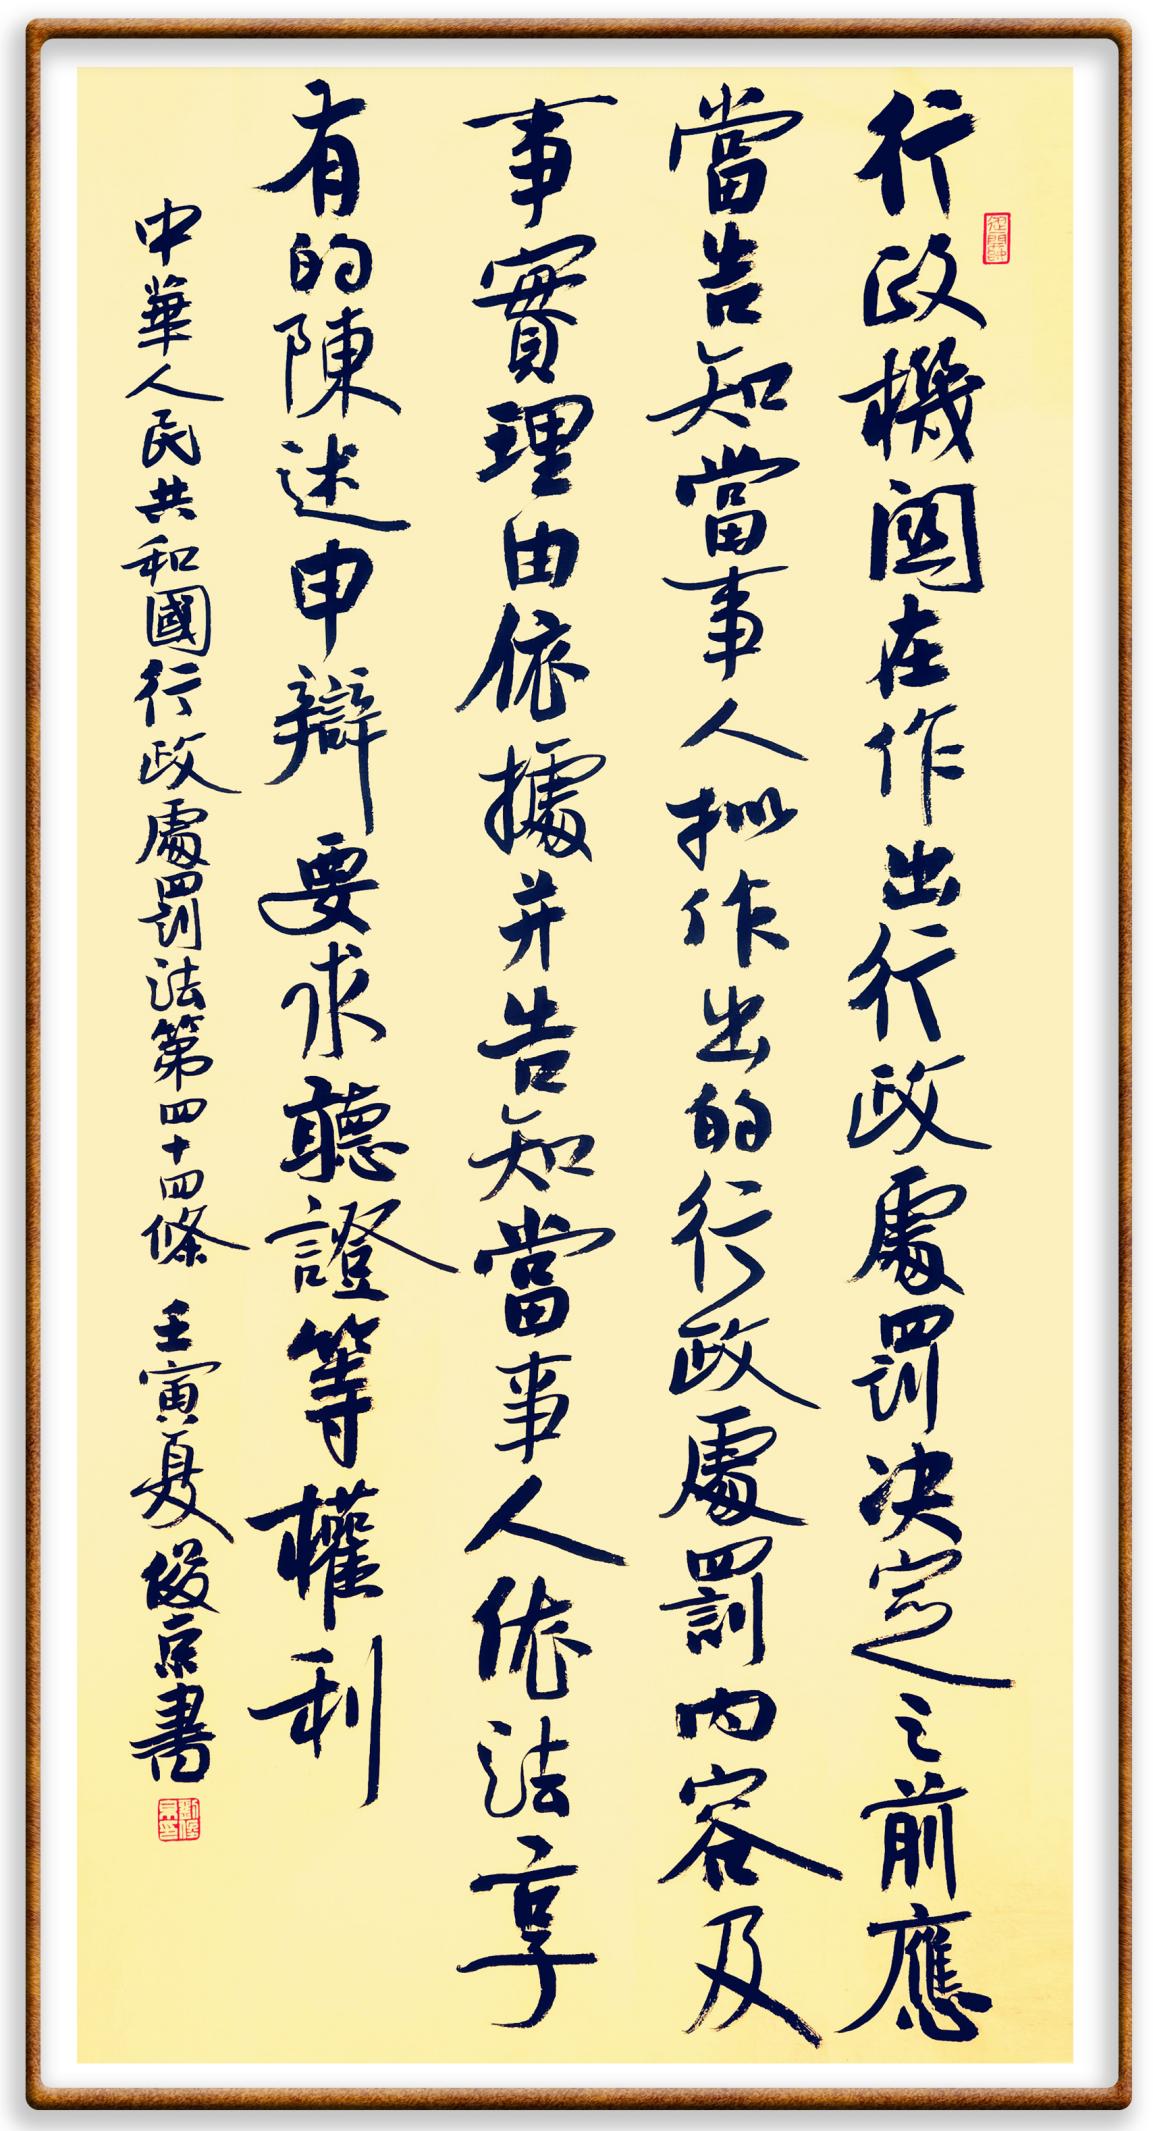 行政機關在作出行政處罰决定之前應
當告知當事人拟作出的行政處罰内容及
事實理由依據并告知當事人依法享
有的陳述申辯要求聽證等權利
中華人民共和國行政處罰法第四十四條 壬寅夏俊京書